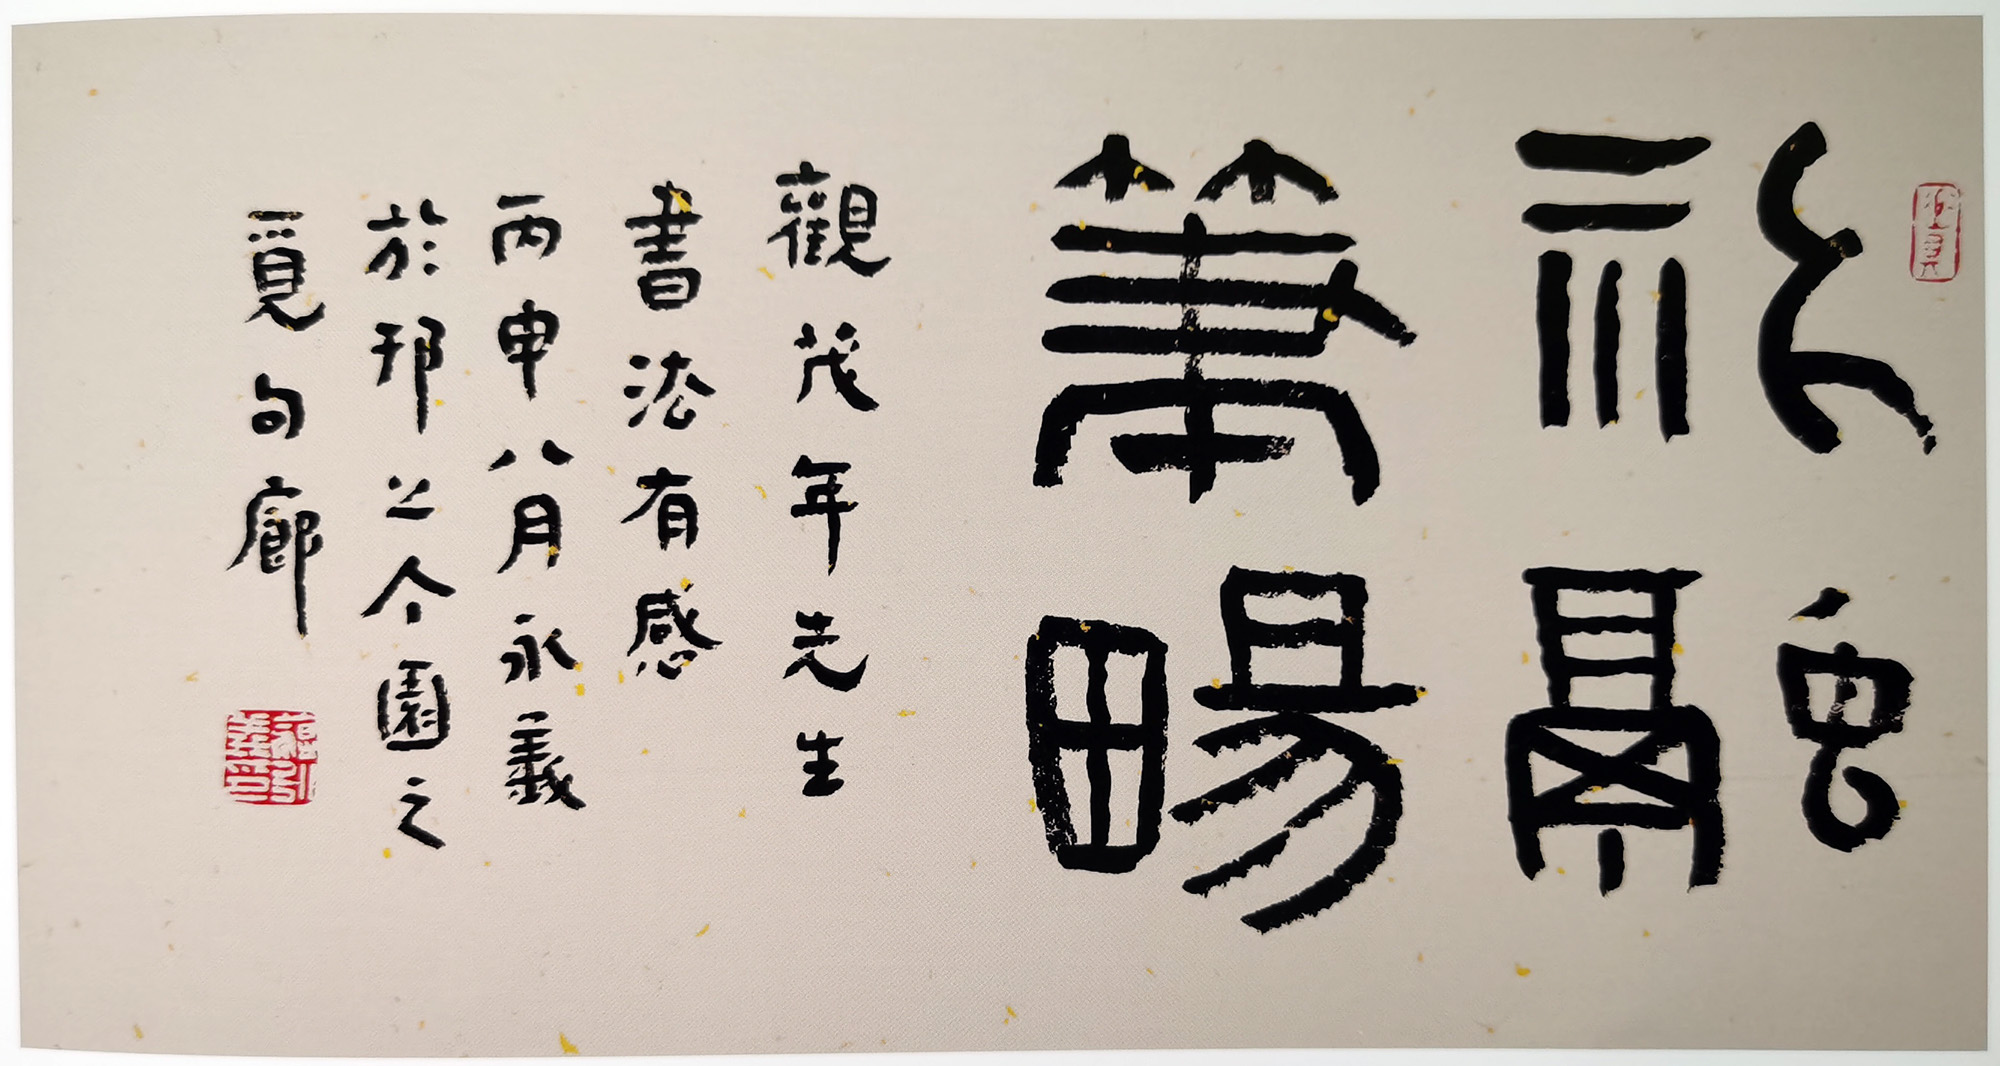 神融
筆暢
觀茂年先生
書法有感
丙申八月永義
於邗上个園之
覓句廊